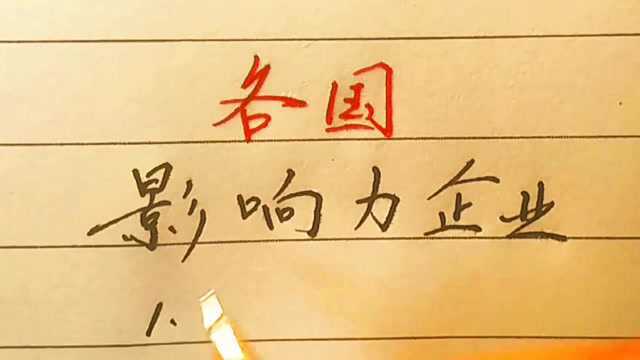 各国
影响力企业
1.